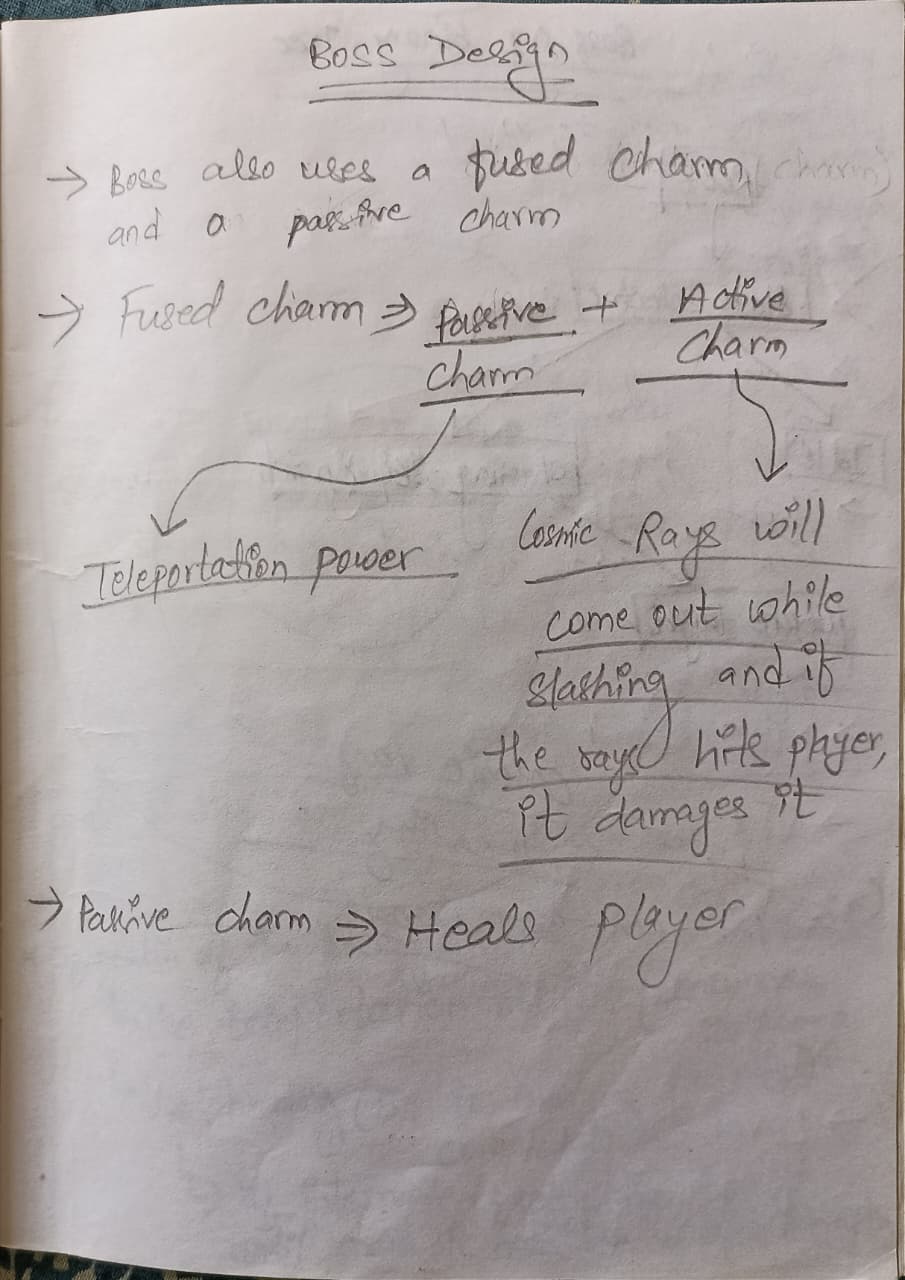 Boss Design
→ Boss also uses a fused charm,
and a passive charm
→ Fused charm ⇒ Passive + Active
charm Charm
Teleportation power
Cosmic Rays will
come out while
slashing and if
the rays hits player,
it damages it
→ Passive charm ⇒ Heals player